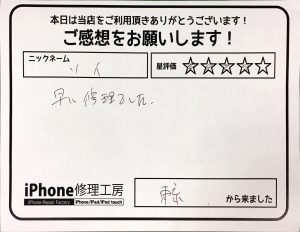 本日は当店をご利用頂きありがとうございます!
ご感想をお願いします!
ニックネーム
ソイ
星評価 ★★★★★
早い修理でした。
iPhone修理工房
iPhone Repair Factory iPhone/iPad/iPad touch
東京 から来ました